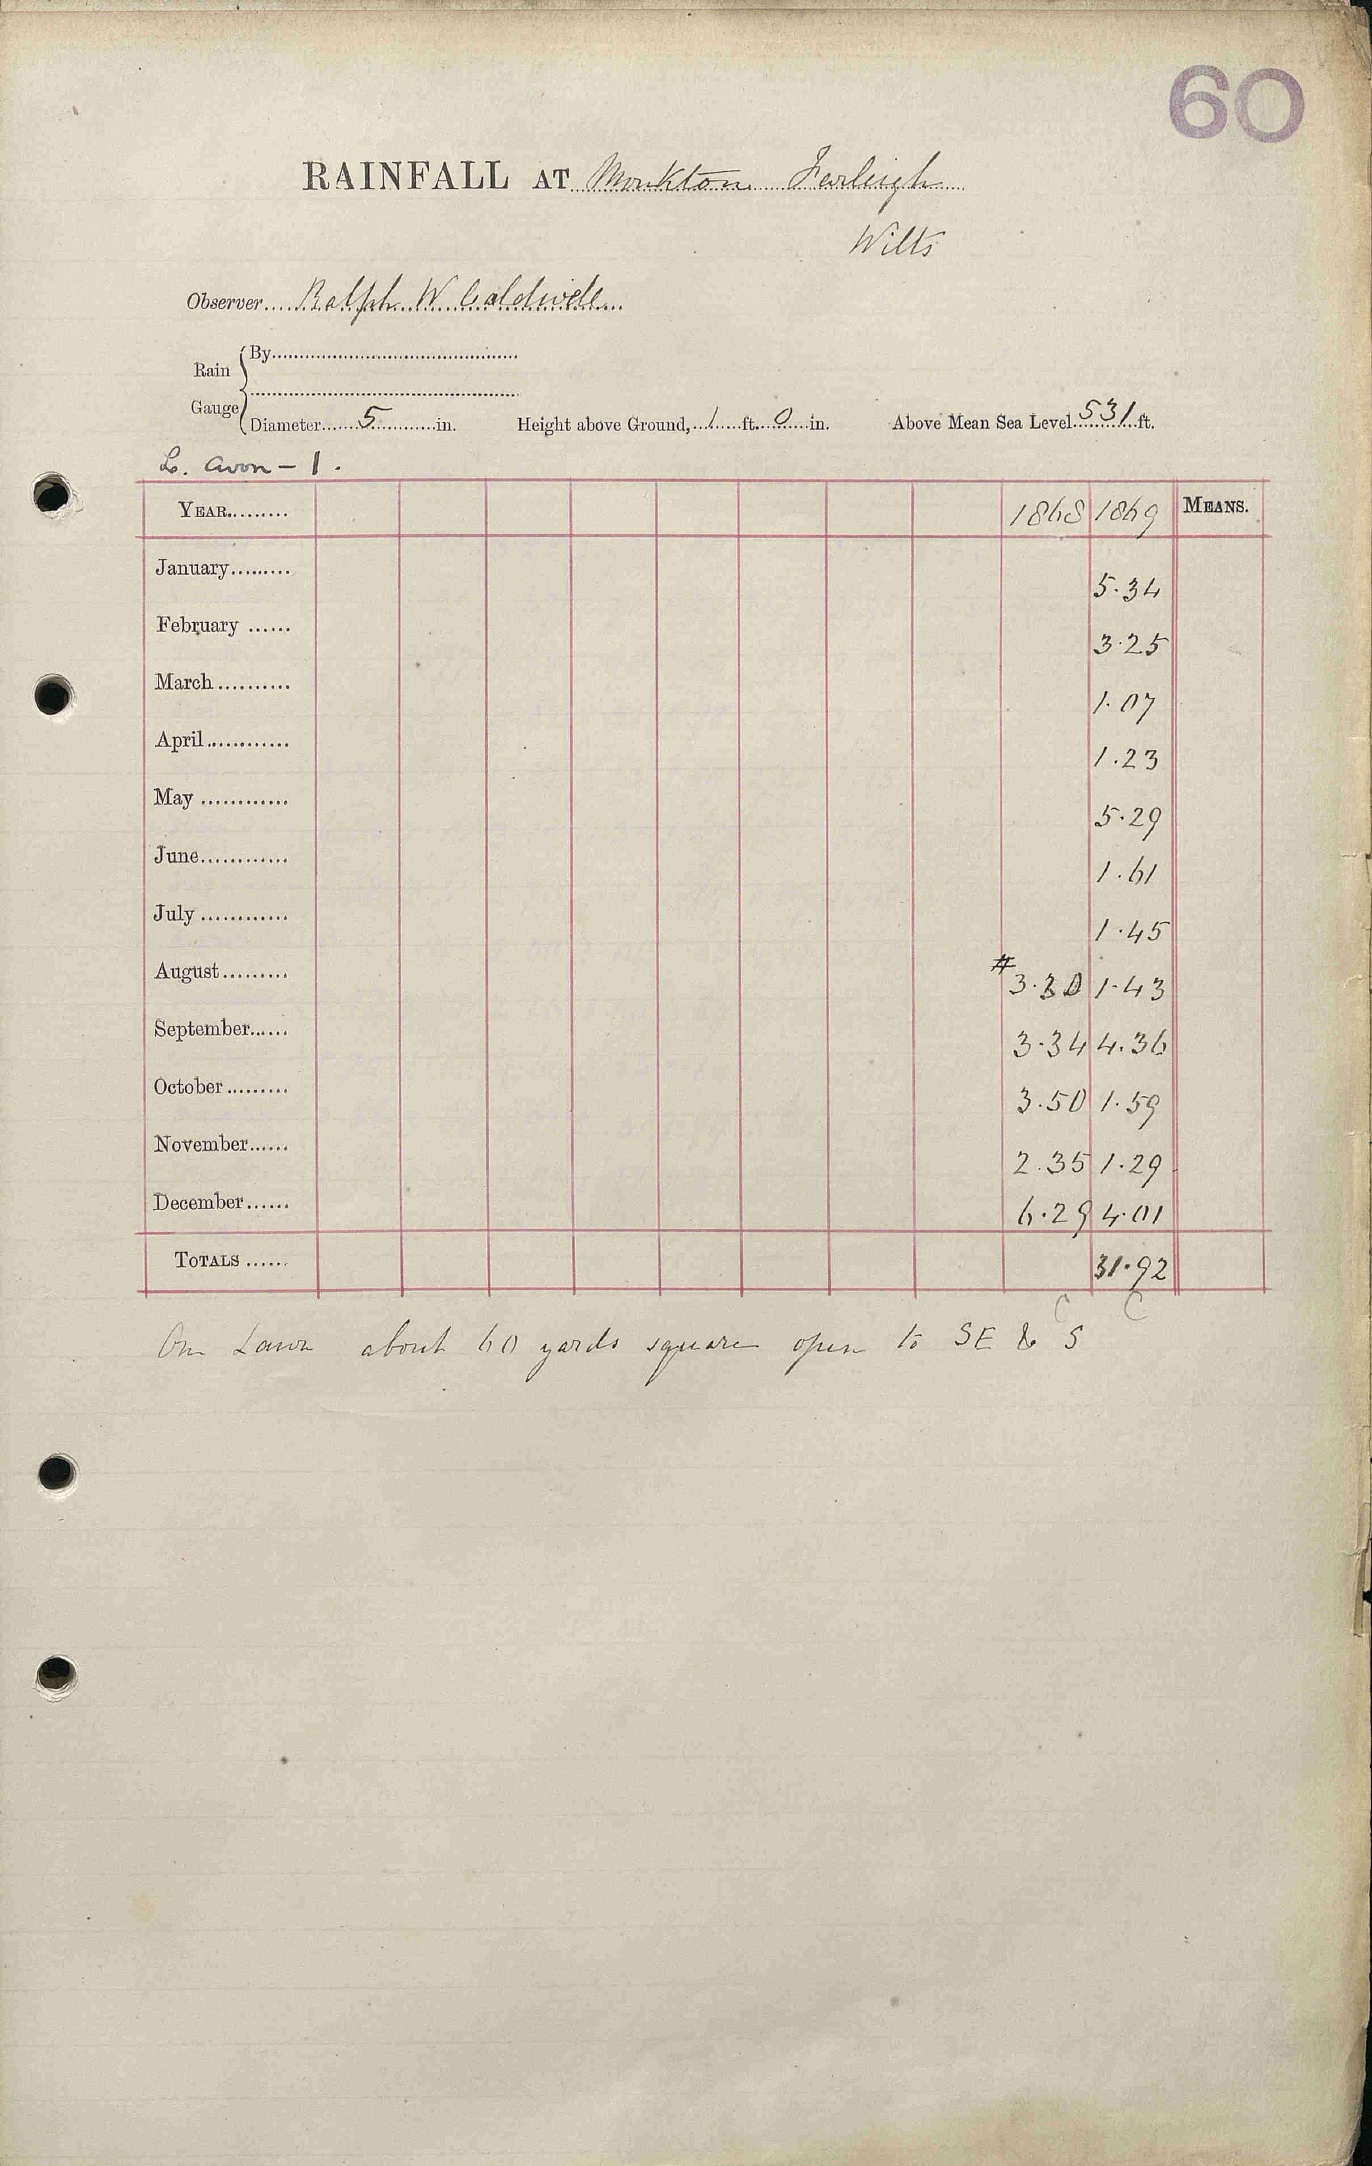 60
RAINFALL AT Monkton Farleigh
Wilts
Observer.... Ralph W Caldwell
Rain Gauge
By
Diameter 5 in. Height above Ground, 1 ft. 0 in. Above Mean Sea Level 531 ft.
L. Avon – 1.
YEAR 1868 1869 MEANS.
January 5.34
February 3.25
March 1.07
April 1.23
May 5.29
June 1.61
July 1.45
August #3.30 1.43
September 3.34 4.36
October 3.50 1.59
November 2.35 1.29
December 6.29 4.01
TOTALS 31.92
C C
On Lawn about 60 yards square open to SE & S